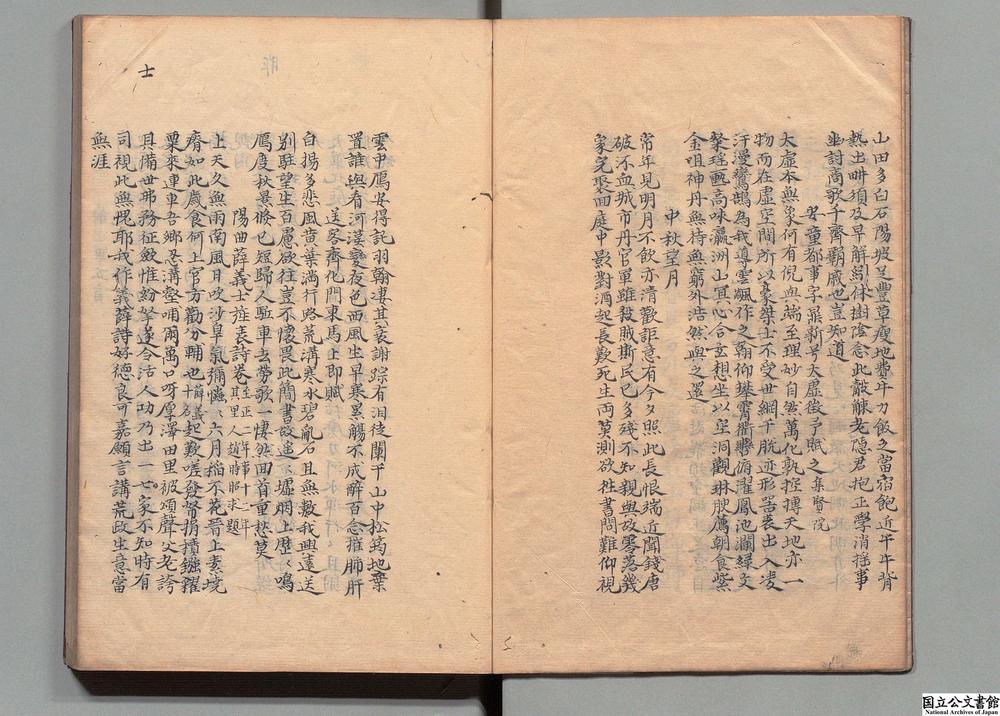 山田多白石陽坡足豐草瘦地費牛力飯之當宿飽近午牛背
熱出畊須及早解紖休樹陰念此觳觫老隱君抱正學消揺事
幽討商歌千齊覊戚也豈知道
太虛本無象何有倪與端至理妙自然萬化孰控摶天地亦一
物而在虛空間所以豪桀士不受世網干脱迹形器表出入凌
汗漫鸞鵠為我導雲颿作之翰仰攀霄衢轡俯濯鳳池瀾繹文
粲瑤甌高咏瀛洲山冥心合玄想坐以空洞觀琳腴薦朝食紫
金咀神丹無待無窮外浩然與之還
中秋望月
常年見明月不飲亦清歡詎意有今夕照此長恨端近聞錢唐
破流血城市丹官軍雖殺賊斯民已多殘不知親與故零落幾
家完娶面庭中影對酒起長歎死生両莫測欲往書問難仰視
雲中鴈安得託羽翰凄其哀謝踪有泪徒闌干山中松筠地棄
置誰與看河漢變夜色西風生早寒累觴不成醉百念摧肺肝
送客齊化門東馬上即賦
白揚多悲風黄葉滿行路荒溝寒水碧亂石且無數我興遠送
别駐望生百慮欲往豈不懷畏此簡書故遥〻墟烟上歴〻鳴
鴈度秋景倐已短歸人駈車去勞歌一悽然回首重悲莫
陽曲薛義士旌表詩卷至正二年事十二年其里人趙時昭求題
上天久無雨南風日吹沙旱氣彌惔〻六月稲不花晋上素境
瘠如此歲食何上官方勸分輔也十
粟來連車吾鄉忍溝壑哺爾萬口呀厚澤田里被頌聲父老誇
具備世弗務征斂惟紛拏遂令活人功乃出一士家不知時有
司視此無愧耶我作義薛詩好德良可嘉願言講荒政生意當
無涯
士
昨
国立公文書館
National Archives of Japan